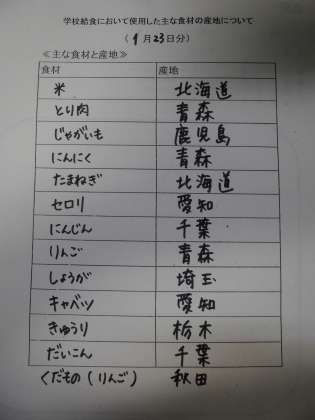 学校給食において使用した主な食材の産地について
(4月23日分)
≪主な食材と産地≫
食材 産地
米 北海道
とり肉 青森
じゃがいも 鹿児島
にんにく 青森
たまねぎ 北海道
セロリ 愛知
にんじん 千葉
りんご 青森
しょうが 埼玉
キャベツ 愛知
きゅうり 栃木
だいこん 千葉
くだもの(りんご) 秋田